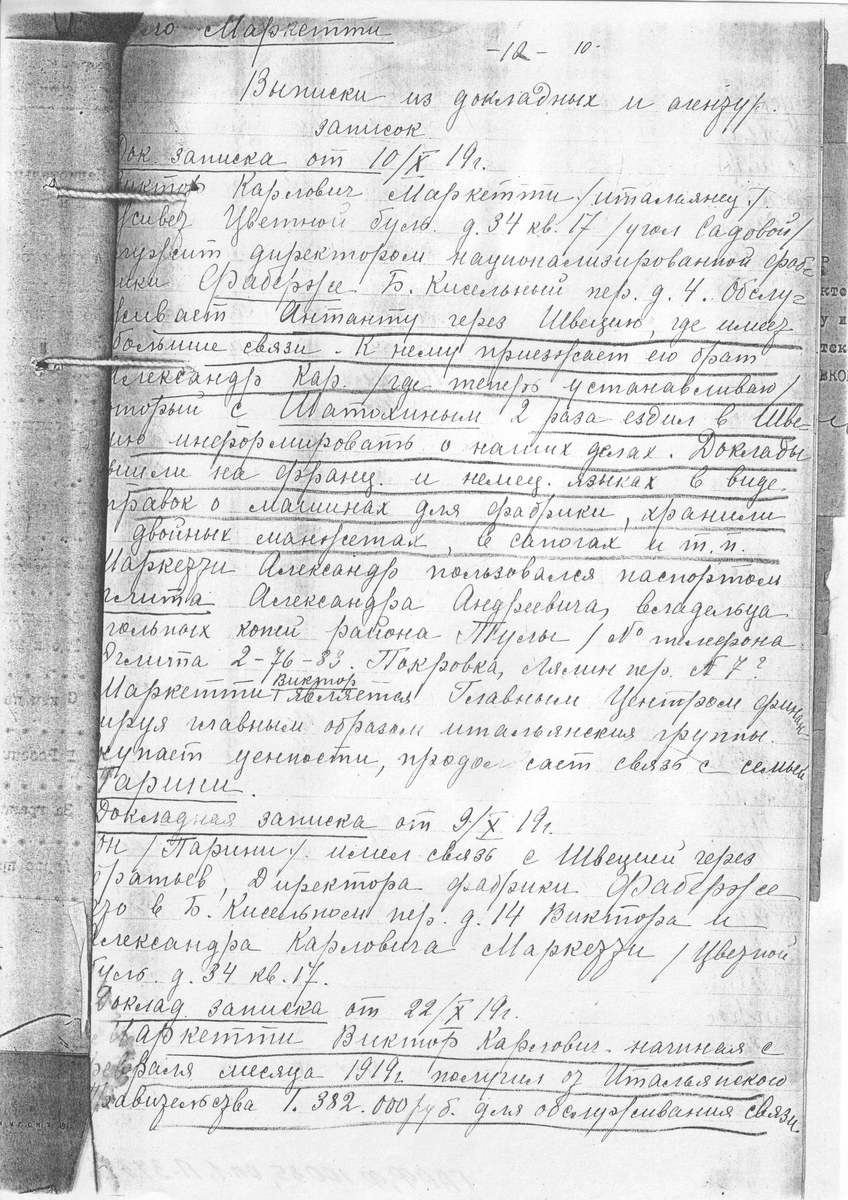 Дело Маркетти
-12- 10.
Выписки из докладных и агентур.
записок
Док. записка от 10/X 19г.
Виктор Карлович Маркетти /итальянец/.
живет Цветной буль. д. 34 кв. 17 /угол Садовой/
служит директором национализированной фаб-
рики Фаберже Б. Кисельный пер. д. 4. Обслу-
живает Антанту через Швецию, где имеет
большие связи. К нему приезжает его брат
Александр Кар. /где теперь устанавливаю/
который с Шатохиным 2 раза ездил в Шве-
цию информировать о наших делах. Доклады
писали на франц. и немец. языках в виде
справок о машинах для фабрики, хранили
в двойных манжетах, в сапогах и т.п.
Маркетти Александр пользовался паспортом
Александра Андреевича, владельца
угольных копей района Тулы / № телефона
2-76-83. Покровка, Лялин пер. № 7?
Маркетти Виктор является Главным Центром финан-
сируя главным образом итальянския группы.
Скупает ценности, продолжает связь с семьей
Парини.
Докладная записка от 9/X 19г.
Он /Парини/. имел связь с Швецией через
братьев, Директора фабрики Фаберже
что в Б. Кисельном пер. д. 14 Виктора и
Александра Карловича Маркетти / Цветной
буль. д. 34 кв. 17.
Доклад. записка от 22/X 19г.
Маркетти Виктор Карлович. начиная с
февраля месяца 1919г получил от Итальянского
Правительства 1.382.000 руб. для обслуживания связи